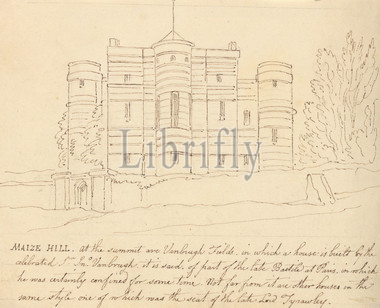 Librifly
MAIZE HILL. At the summit are Vanbrugh Fields, in which a house is built by the
celebrated Sr Jno Vanbrugh. it is said, of part of the late Bastile at Paris, in which
he was certainly confined for some time. Not far from it are other houses in the
same style one of which was the seat of the late Lord Tyrawley.